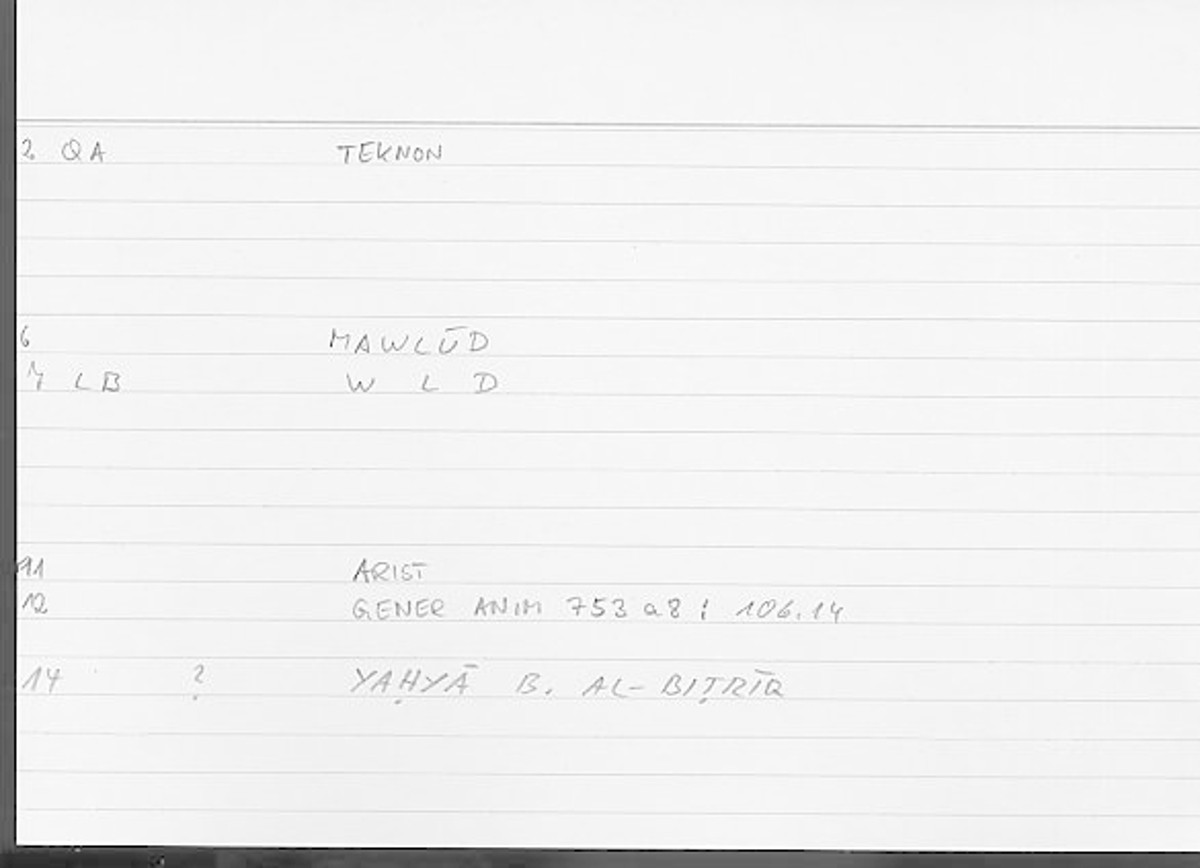 2 QA TEKNON
6 MAWLŪD
7 LB W L D
11 ARIST
12 GENER ANIM 753 a8 : 106.14
14 ? YAḤYĀ B. AL-BIṬRĪQ